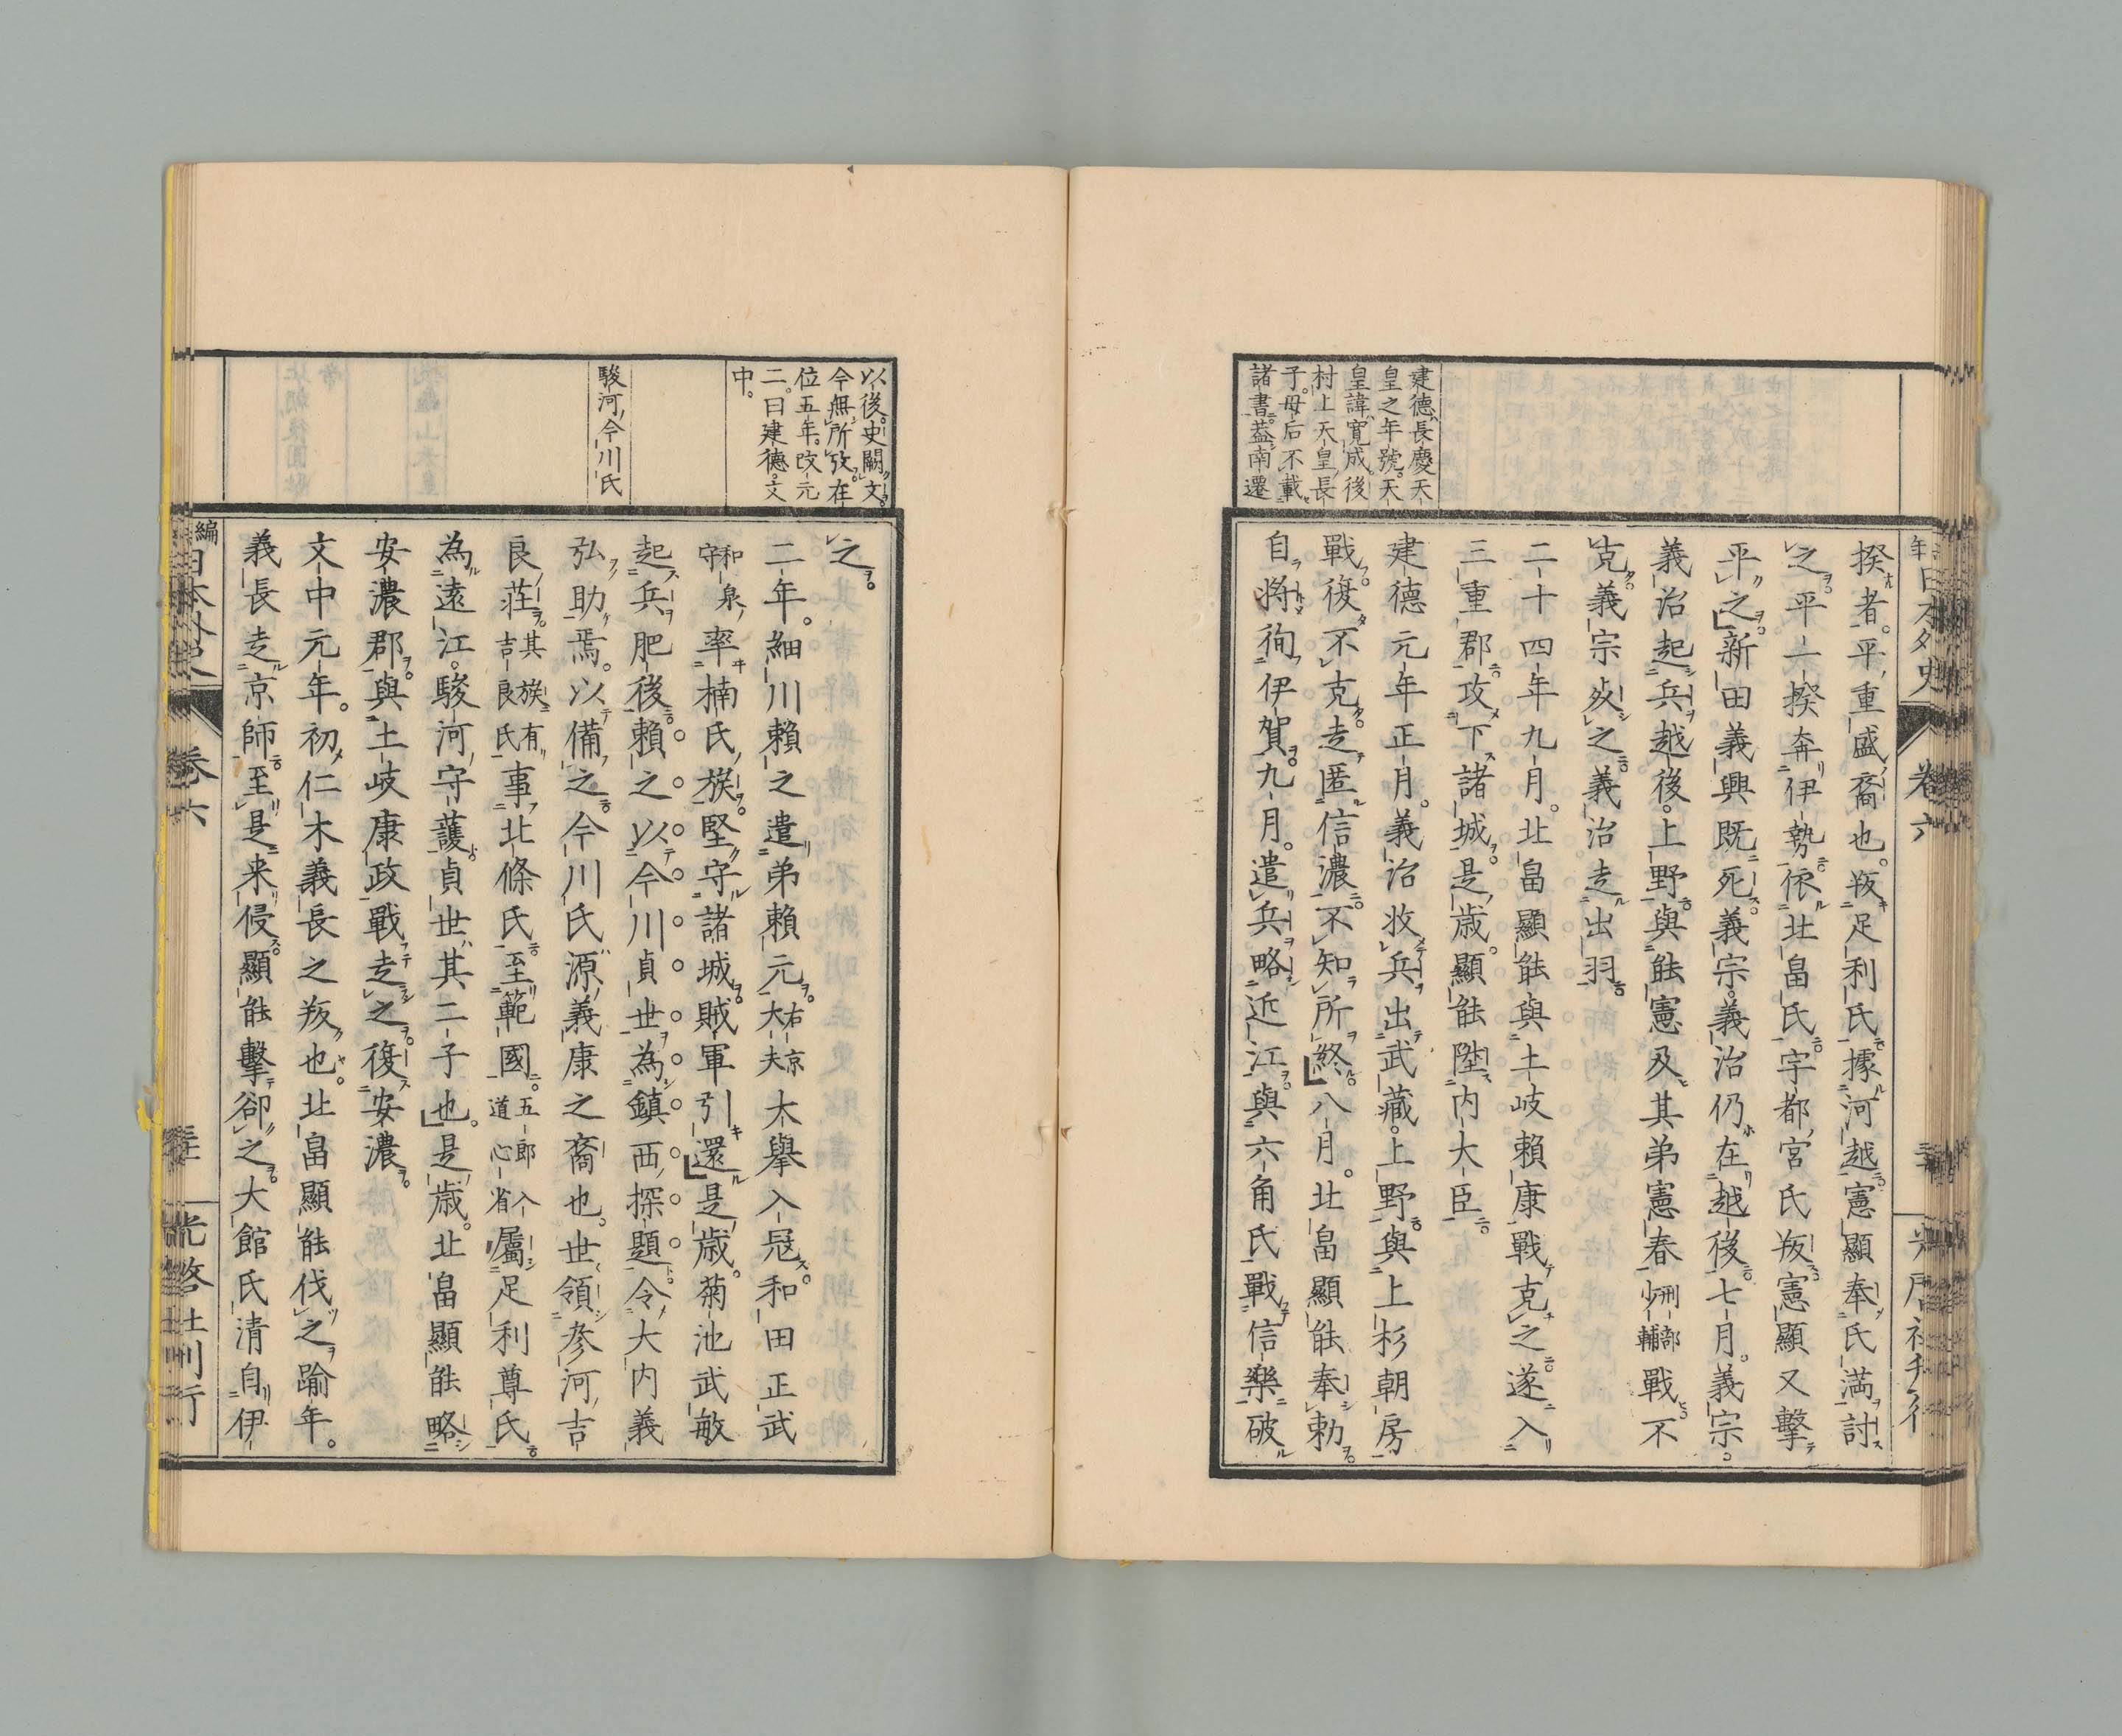 建德長慶天
皇之年號。天
皇諱寛成。後
村上天皇長
子。母后不載
諸書。蓋南遷
卷六
揆者。平重盛裔也。叛足利氏據河越憲顯奉氏滿討
之平一揆奔伊勢依北畠氏宇都宮氏叛憲顯又擊
平之新田義興既死義宗。義治仍在越後七月。義宗。
義治起兵越後。上野與能憲及其弟憲春刑部少輔戰不
克義宗死之義治走出羽
二十四年九月。北畠顯能與土岐賴康戰克之遂入
三重郡攻下諸城。是歲。顯能陞內大臣
建德元年正月。義治收兵出武藏。上野與上杉朝房
戰。復不克走匿信濃。不知所終八月。北畠顯能奉勅。
自將徇伊賀。九月。遣兵略近江與六角氏戰信樂破
以後。史闕文。
今無所攷。在
位五年。改元
二。曰建德。文
中。
駿河今川氏
之。
二年。細川賴之遣弟賴元。右京大夫大擧入冦。和田正武
和泉守率楠氏族。堅守諸城。賊軍引還是歲。菊池武敏
起兵肥後賴之以今川貞世為鎮西探題令大內義
弘助焉。以備之今川氏源義康之裔也。世領參河吉
良莊。其族有吉良氏事北條氏至範國。五郎入道心省屬足利尊氏
為遠江。駿河守護貞世其二子也。是歲。北畠顯能略
安濃郡。與土岐康政戰走之。復安濃。
文中元年。初仁木義長之叛也。北畠顯能伐之踰年。
義長走京師至是來侵。顯能擊卻之。大館氏清自伊
編
日本外史
卷六
光啓社刊行